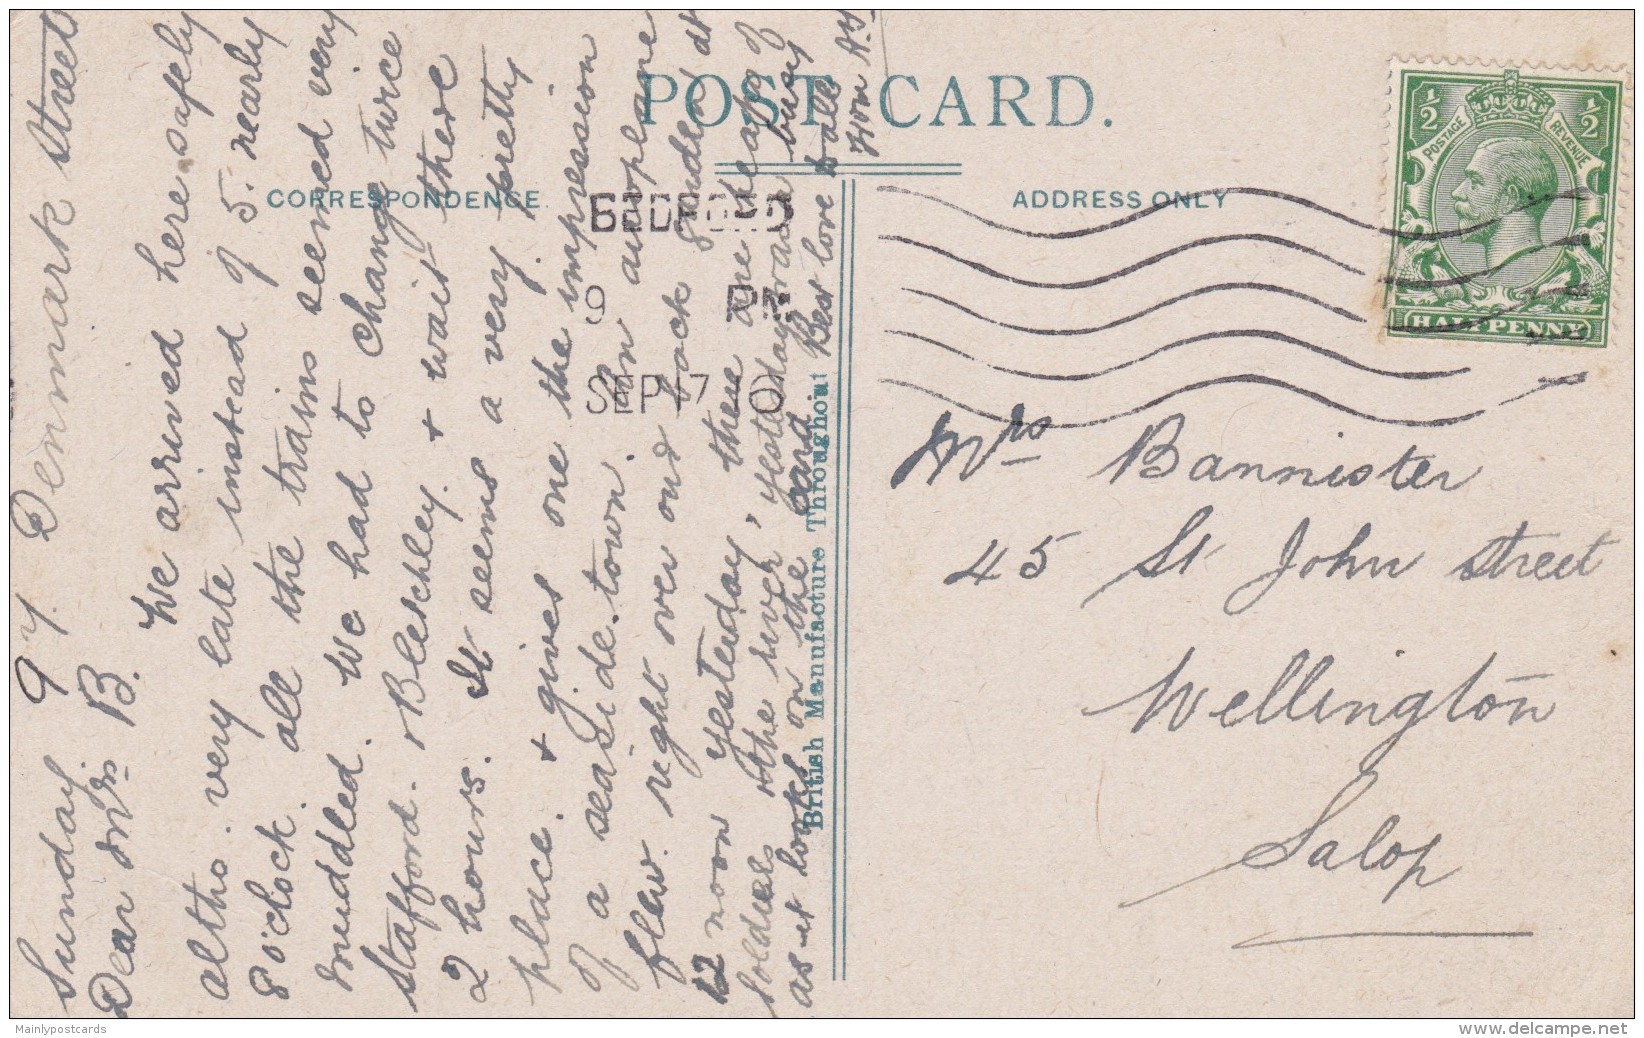 POST CARD.
CORRESPONDENCE
ADDRESS ONLY
BEDFORD
9 PM
SEP 17
½ ½
POSTAGE REVENUE
HALFPENNY
British Manufacture Throughout
Sunday. 97. Denmark Street
Dear Mrs B.
We arrived here safely
altho. very late instead of 5. nearly
8 o'clock. all the trains seemed very
muddled. We had to change twice
Stafford. & Bletchley. & wait there
2 hours. It seems a very. pretty
place. & gives one the impression
of a seaside. town. An auroplane
flew right over our back garden at
12 noon yesterday, there are heaps of
soldiers & the river, yesterday was busy
as it looks on the card Best love to all
from
Mrs Bannister
45 St John Street
Wellington
Salop
Mainlypostcards
delcampe.net